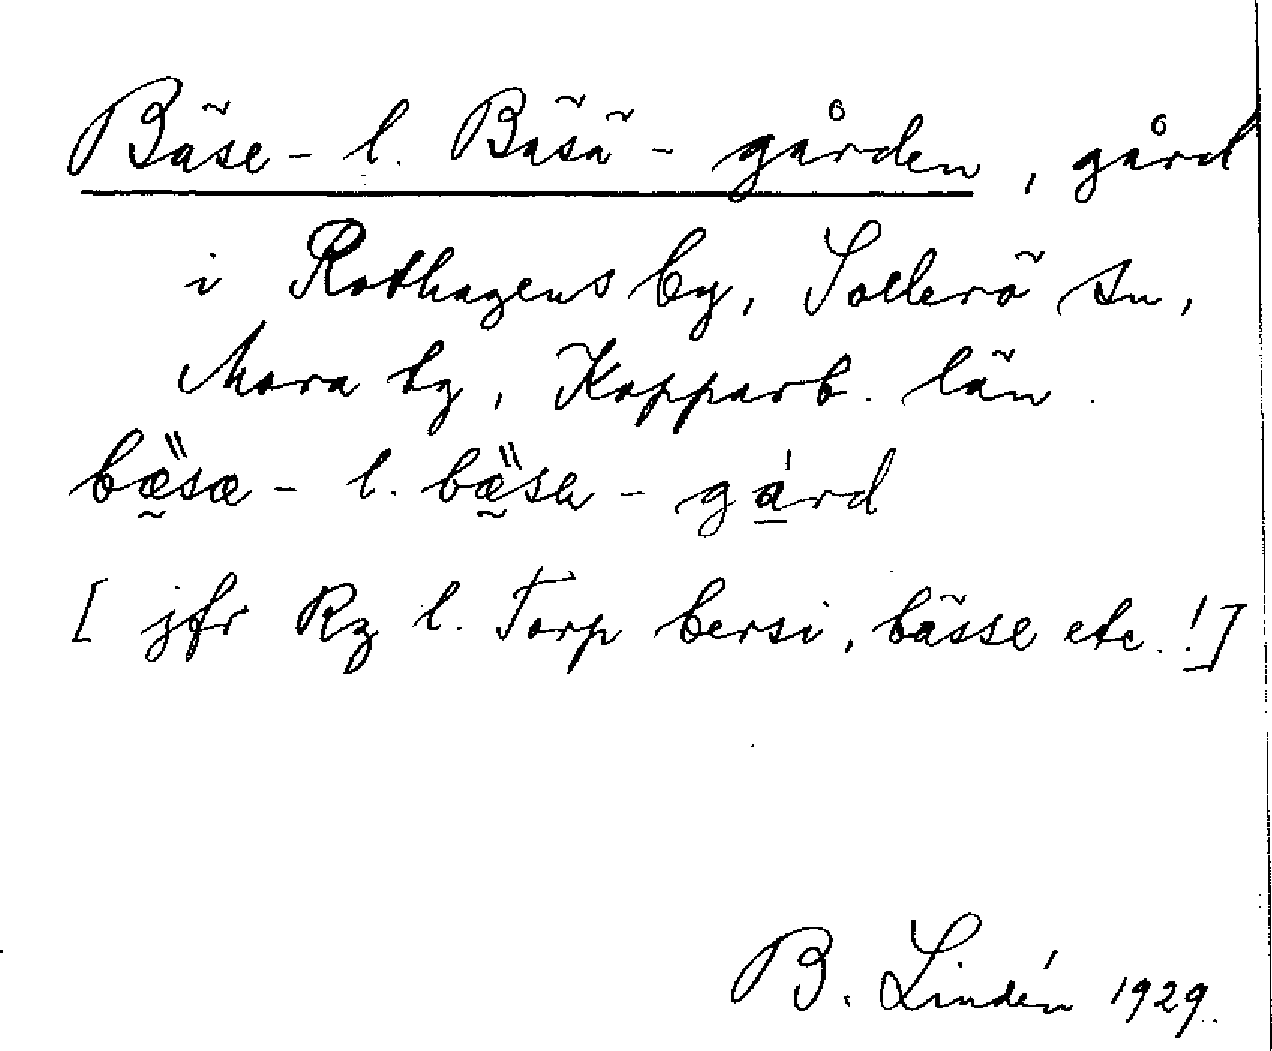 Bäse- l. Bäsä-gården, gård
i Rothagens by, Sollerö sn,
Mora tg, Kopparb. län.
bæ̰̋sæ- l. bæ̰̋sa-gá̱rd
[jfr Rz l. Torp bersi, bässe etc.!]
B. Lindén 1929.